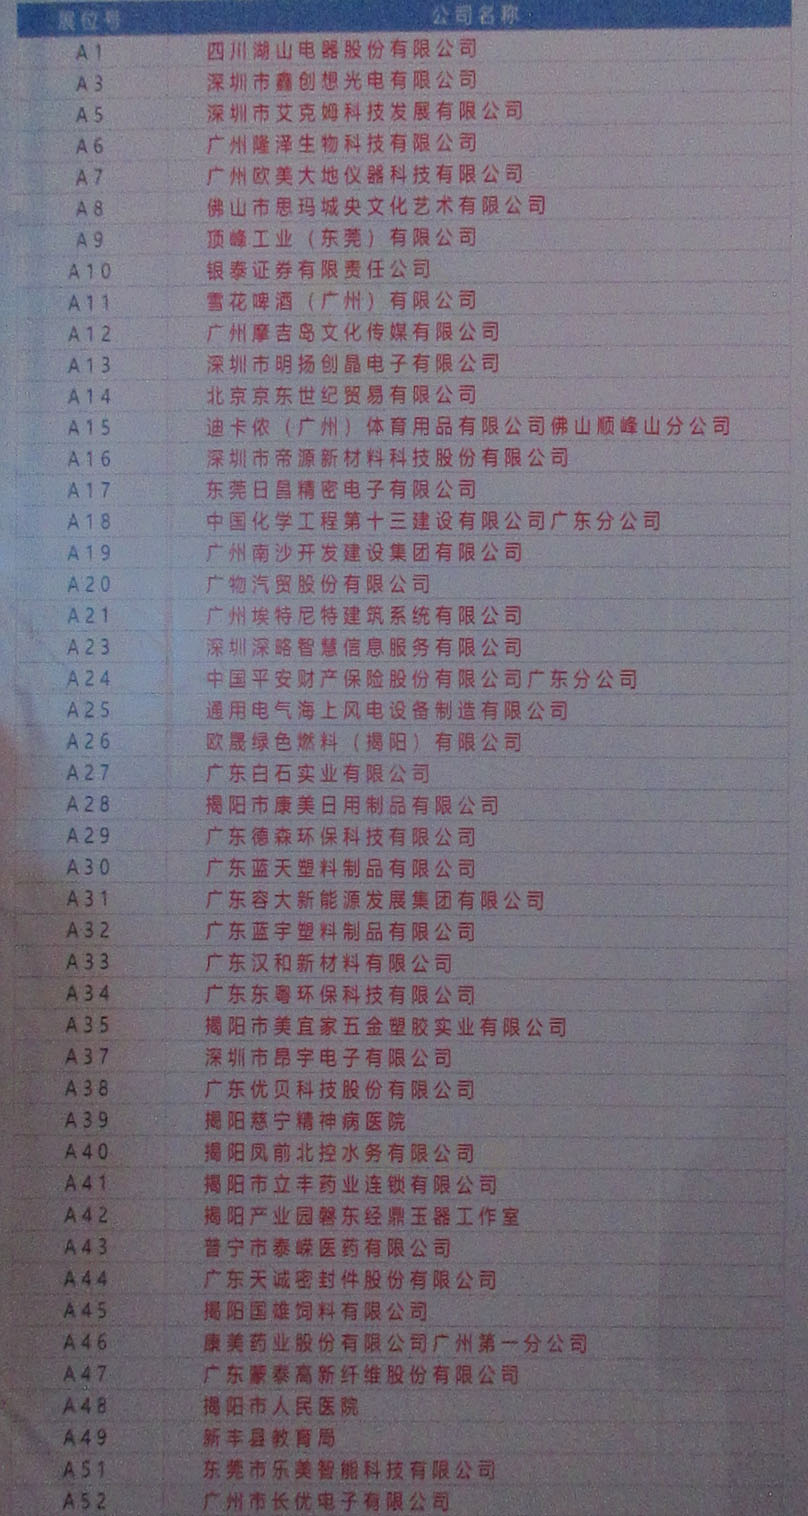 展位号 公司名称
A1 四川湖山电器股份有限公司
A3 深圳市鑫创想光电有限公司
A5 深圳市艾克姆科技发展有限公司
A6 广州隆泽生物科技有限公司
A7 广州欧美大地仪器科技有限公司
A8 佛山市思玛城央文化艺术有限公司
A9 顶峰工业（东莞）有限公司
A10 银泰证券有限责任公司
A11 雪花啤酒（广州）有限公司
A12 广州摩吉岛文化传媒有限公司
A13 深圳市明扬创晶电子有限公司
A14 北京京东世纪贸易有限公司
A15 迪卡侬（广州）体育用品有限公司佛山顺峰山分公司
A16 深圳市帝源新材料科技股份有限公司
A17 东莞日昌精密电子有限公司
A18 中国化学工程第十三建设有限公司广东分公司
A19 广州南沙开发建设集团有限公司
A20 广物汽贸股份有限公司
A21 广州埃特尼特建筑系统有限公司
A23 深圳深略智慧信息服务有限公司
A24 中国平安财产保险股份有限公司广东分公司
A25 通用电气海上风电设备制造有限公司
A26 欧晟绿色燃料（揭阳）有限公司
A27 广东白石实业有限公司
A28 揭阳市康美日用制品有限公司
A29 广东德森环保科技有限公司
A30 广东蓝天塑料制品有限公司
A31 广东容大新能源发展集团有限公司
A32 广东蓝宇塑料制品有限公司
A33 广东汉和新材料有限公司
A34 广东东粤环保科技有限公司
A35 揭阳市美宜家五金塑胶实业有限公司
A37 深圳市昂宇电子有限公司
A38 广东优贝科技股份有限公司
A39 揭阳慈宁精神病医院
A40 揭阳凤前北控水务有限公司
A41 揭阳市立丰药业连锁有限公司
A42 揭阳产业园磐东经鼎玉器工作室
A43 普宁市泰嵘医药有限公司
A44 广东天诚密封件股份有限公司
A45 揭阳国雄饲料有限公司
A46 康美药业股份有限公司广州第一分公司
A47 广东蒙泰高新纤维股份有限公司
A48 揭阳市人民医院
A49 新丰县教育局
A51 东莞市乐美智能科技有限公司
A52 广州市长优电子有限公司